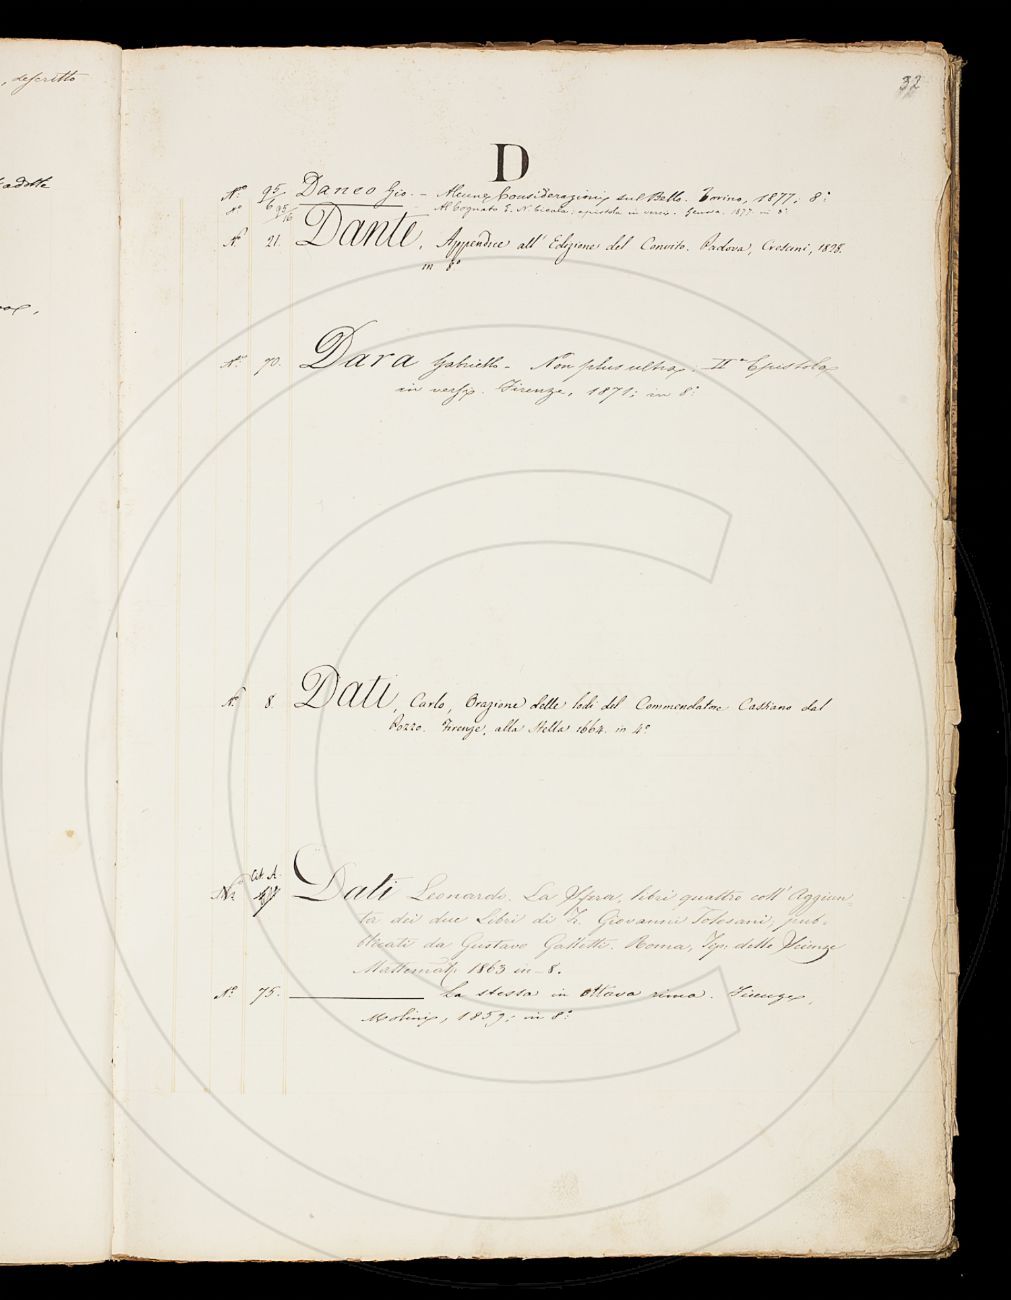 , descritto
32
D
N.° 95/6 Daneo Gio. – Alcune Considerazioni sul Bello. Torino, 1877, 8.°
N.° 95/16 Al Cognato E. N. epistola in versi. Genova. 1877. in 8.°
N.° 21. Dante, Appendice all' Edizione del Convito. Padova, Crescini, 1828.
in 8.°
N.° 70. Dara Gabriello – Non plus ultra: II.a Epistola
in versi. Firenze, 1871; in 8.°
N.° 8. Dati, Carlo, Orazione delle lodi del Commendatore Cassiano dal
Pozzo. Firenze, alla Stella 1664. in 4.°
Cat. A.
N.° Dati Leonardo. La Sfera, libri quattro coll' Aggiun-
ta dei due Libri di F. Giovanni Tolosani, pub-
blicati da Gustavo Galletti. Roma, Tip. delle Scienze
Mattemat. 1863 in-8.
N.° 75. La stessa in ottava rima. Firenze,
Molini, 1859; in 8.°